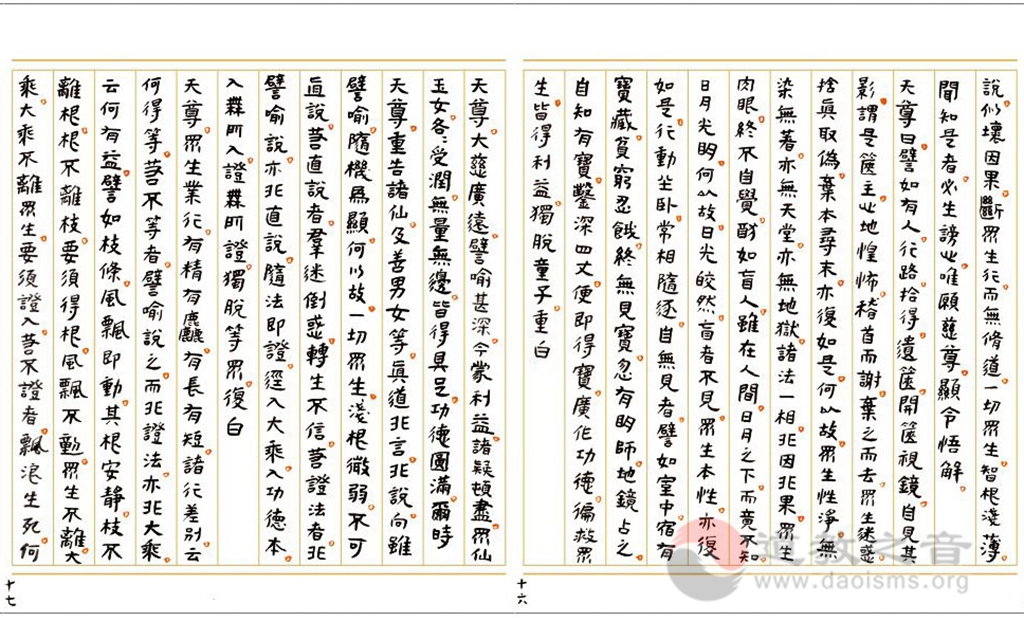 說似壞因果斷眾生行而無脩道一切眾生智根淺薄
聞知是者必生謗心唯願慈尊顯令悟解
天尊曰譬如有人行路拾得遺篋開篋視鏡自見其
影謂是篋主心地惶怖稽首而謝棄之而去眾生迷惑
捨真取偽棄本尋末亦復如是何以故眾生性淨無
染無著亦無天堂亦無地獄諸法一相非因非果眾生
肉眼終不自覺酧如盲人雖在人間日月之下而竟不知
日月光明何以故日光皎然盲者不見眾生本性亦復
如是行動坐卧常相隨逐自無見者譬如室中宿有
寶藏貧窮忍餓終無見寶忽有明師地鏡占之
自知有寶鑿深四丈便即得寶廣作功德徧救眾
生皆得利益獨脫童子重白
十六
天尊大慈廣遠譬喻甚深今蒙利益諸疑頓盡眾仙
玉女各各受潤無量無邊皆得具足功德圓滿爾時
天尊重告諸仙及善男女等真道非言非說向雖
譬喻隨機為顯何以故一切眾生淺根微弱不可
直說若直說者羣迷倒惑轉生不信若證法者非
譬喻說亦非直說隨法即證逕入大乘入功德本
入無所入證無所證獨脫等眾復白
天尊眾生業行有精有麤有長有短諸行差別云
何得等若不等者譬喻說之而非證法亦非大乘
云何有益譬如枝條風飄即動其根安靜枝不
離根根不離枝要須得根風飄不動眾生不離大
乘大乘不離眾生要須證入若不證者飄浪生死何
十七
道教之音
www.daoisms.org